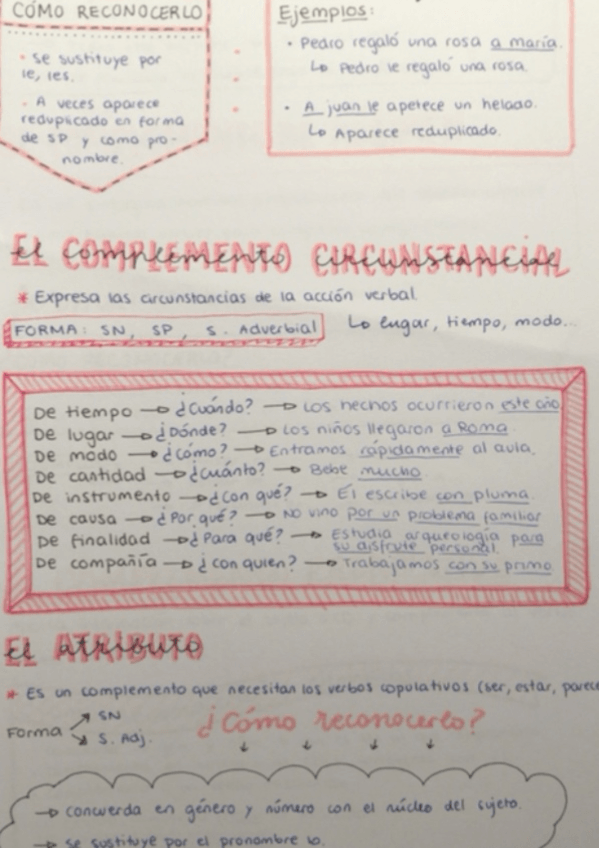 CÓMO RECONOCERLO
• Se sustituye por
le, les.
• A veces aparece
reduplicado en forma
de SP y como pro-
nombre.
Ejemplos:
• Pedro regaló una rosa a maría.
↳ Pedro le regaló una rosa.
• A juan le apetece un helado.
↳ Aparece reduplicado.
EL COMPLEMENTO CIRCUNSTANCIAL
* Expresa las circunstancias de la acción verbal.
FORMA: SN, SP, S. Adverbial
↳ lugar, tiempo, modo...
De tiempo → ¿Cuándo? → Los hechos ocurrieron este año
De lugar → ¿Dónde? → Los niños llegaron a Roma.
De modo → ¿Cómo? → Entramos rápidamente al aula.
De cantidad → ¿Cuánto? → Bebe mucho.
De instrumento → ¿Con qué? → Él escribe con pluma.
De causa → ¿Por qué? → No vino por un problema familiar
De finalidad → ¿Para qué? → Estudia arqueología para
su disfrute personal.
De compañía → ¿con quien? → Trabajamos con su primo
EL ATRIBUTO
* Es un complemento que necesitan los verbos copulativos (ser, estar, parece
Forma ↗ SN
↘ S. Adj.
¿Cómo reconocerlo?
→ concuerda en género y número con el núcleo del sujeto.
→ se sustituye por el pronombre lo.